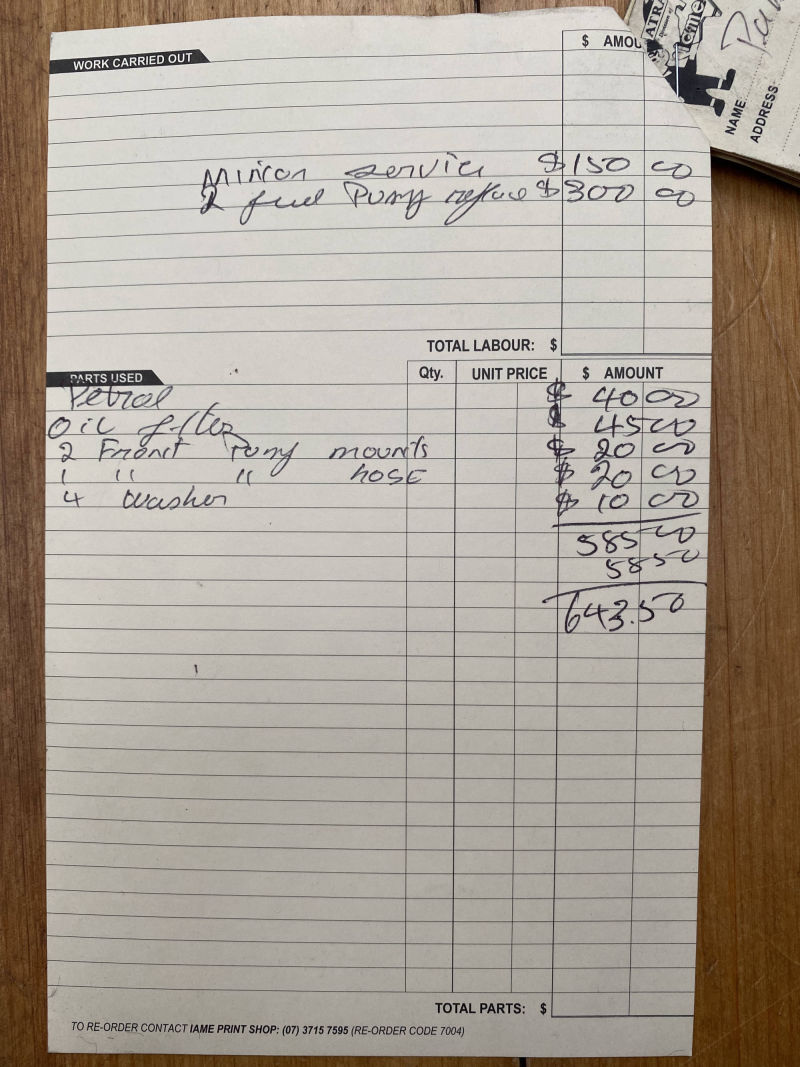 WORK CARRIED OUT
$ AMOU
Minion service $150 00
2 fuel Pump replace $300 00
TOTAL LABOUR: $
PARTS USED Qty. UNIT PRICE $ AMOUNT
Petrol $ 40 00
Oil filter $ 45 00
2 Front Pump mounts $ 20 00
1 " " hose $ 20 00
4 Washer $ 10 00
585 00
58 50
643.50
TOTAL PARTS: $
TO RE-ORDER CONTACT IAME PRINT SHOP: (07) 3715 7595 (RE-ORDER CODE 7004)
NAME
ADDRESS